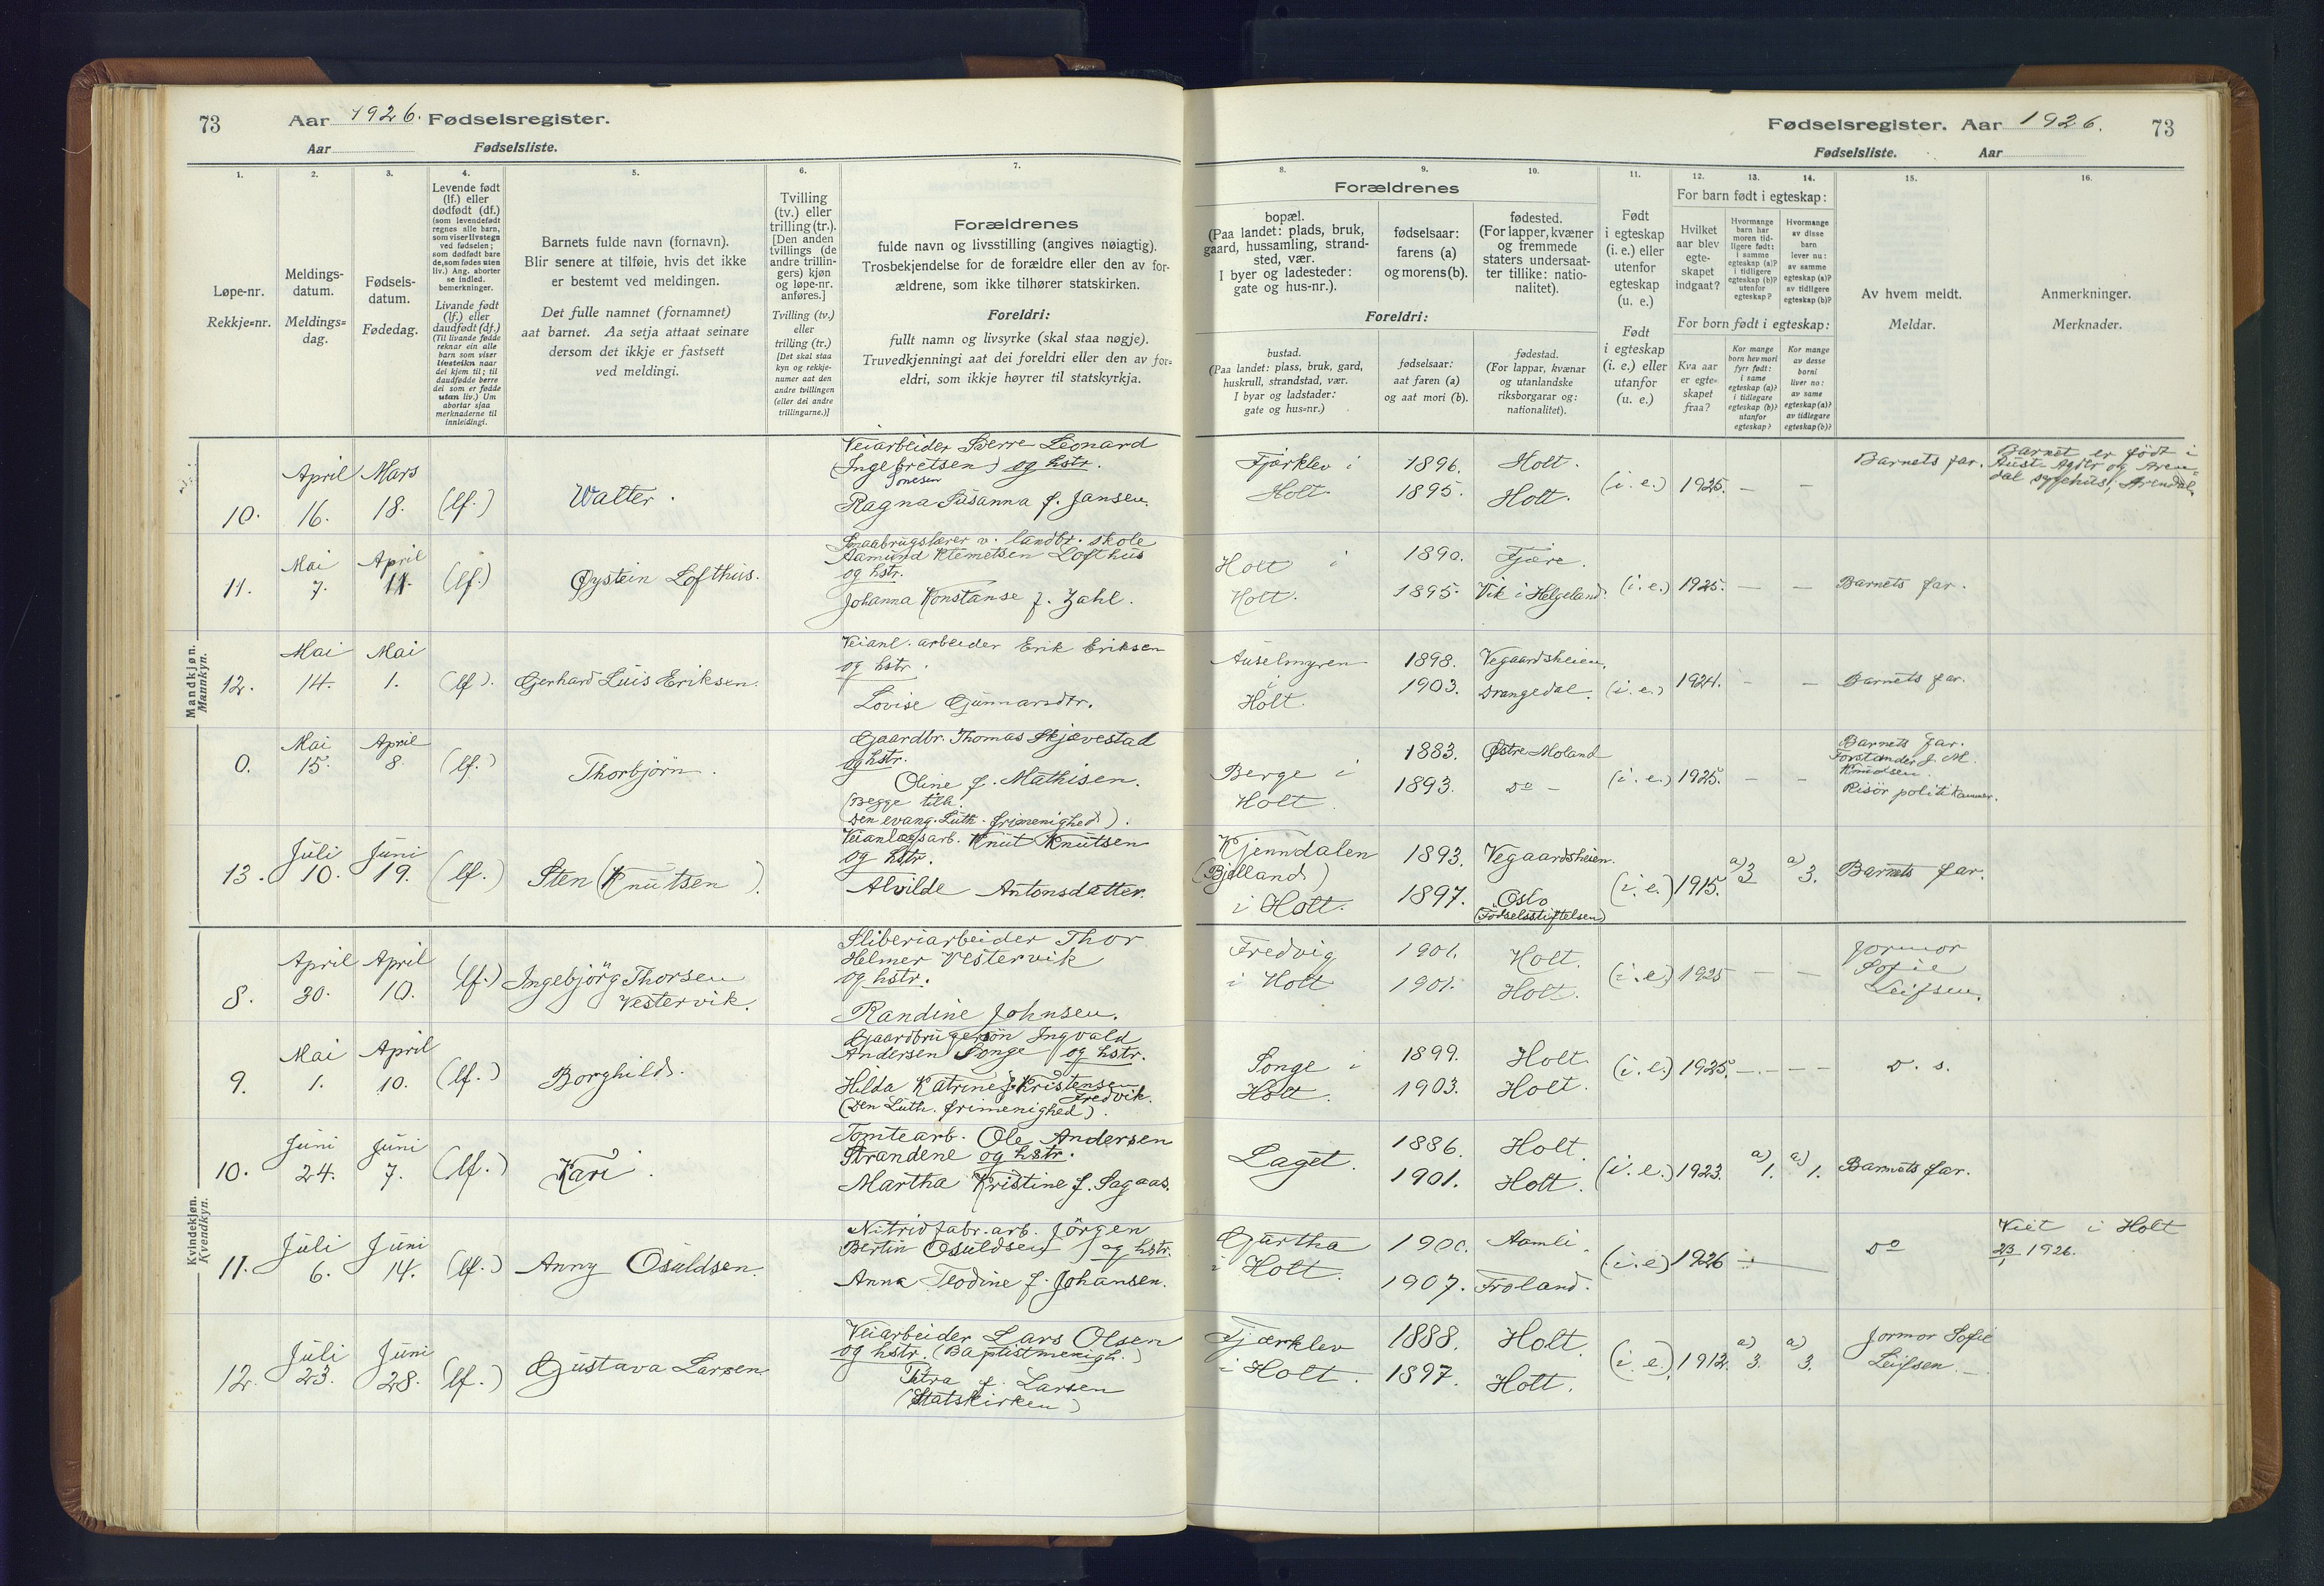 73 Aar 1926. Fødselsregister.
Aar Fødselsliste.
1. 2. 3. 4. 5. 6. 7.
Løpe-nr.
Rekkje=nr.
Meldings-
datum.
Meldings=
dag.
Fødsels-
datum.
Fødedag.
Levende født
(lf.) eller
dødfødt (df.)
(som levendefødt
regnes alle barn,
som viser livstegn
ved fødselen;
som dødfødt bare
de, som fødes uten
liv.) Ang. aborter
se indled.
bemerkninger.
Livande født
(lf.) eller
daudfødt (df.)
(Til livande fødde
reknar ein alle
barn som viser
livsteikn naar
dei kjem til; til
daudfødde berre
dei som er fødde
utan liv.) Um
abortar sjaa
merknaderne til
innleidingi.
Barnets fulde navn (fornavn).
Blir senere at tilføie, hvis det ikke
er bestemt ved meldingen.
Det fulle namnet (fornamnet)
aat barnet. Aa setja attaat seinare
dersom det ikkje er fastsett
ved meldingi.
Tvilling
(tv.) eller
trilling (tr.).
[Den anden
tvillings (de
andre trillin-
gers) kjøn
og løpe-nr.
anføres.]
Tvilling (tv.)
eller
trilling (tr.)
[Det skal staa
kyn og rekkje-
numer aat den
andre tvillingen
(eller dei andre
trillingarne.)]
Forældrenes
fulde navn og livsstilling (angives nøiagtig).
Trosbekjendelse for de forældre eller den av for-
ældrene, som ikke tilhører statskirken.
Foreldri:
fullt namn og livsyrke (skal staa nøgje).
Truvedkjenningi aat dei foreldri eller den av for=
eldri, som ikkje høyrer til statskyrkja.
Mandkjøn.
Mannkyn.
10.
April
16.
Mars
18.
(lf.)
Walter.
Veiarbeider Sverre Leonard
(Ingebretsen) og hstr.
Ragna Susanna f. Jansen.
11.
Mai
7.
April
11.
(lf.)
Øystein Lofthus.
Smaabrugslærer v. landbr. skole
Aamund Klemetsen Lofthus
og hstr.
Johanna Konstanse f. Zahl.
12.
Mai
14.
Mai
1.
(lf).
Gerhard Luis Eriksen.
Veianl. arbeider Erik Eriksen
og hstr.
Lovise Gunnarsdtr.
0.
Mai
15.
April
8.
(lf.)
Thorbjørn.
Gaardbr. Thomas Skjævestad
og hstr.
Oline f. Mathisen.
(Begge tilh.
Den evang. Luth. frimenighed).
13.
Juli
10.
Juni
19.
(lf.)
Sten (Knutsen).
Veianlægsarb. Knut Knutsen
og hstr.
Alvilde Antonsdatter.
Kvindekjøn.
Kvendkyn.
8.
April
30.
April
10.
(lf.)
Ingebjörg Thorsen
Vestervik.
Sliberiarbeider Thor
Helmer Vestervik
og hstr.
Randine Johnsen.
9.
Mai
1.
April
10.
(lf.)
Borghild.
Gaardbrugersön Ingvald
Andersen Songe og hstr.
Hilda Katrine f. Kristensen
Fredvik.
(Den Luth. frimenighed).
10.
Juni
24.
Juni
7.
(lf.)
Kari.
Tomtearb. Ole Andersen
Strandene og hstr.
Martha Kristine f. Sagaas.
11.
Juli
6.
Juni
14.
(lf.)
Anny Osuldsen.
Nitridfabr. arb. Jörgen
Bertin Osuldsen og hstr.
Anna Teodine f. Johansen.
12.
Juli
23.
Juni
28.
(lf.)
Gustava Larsen.
Veiarbeider Lars Olsen
og hstr. (Baptistmenigh.)
f. Larsen
(Statskirken)
Fødselsregister. Aar 1926. 73
Fødselsliste. Aar
8. 9. 10. 11. 12. 13. 14. 15. 16.
Forældrenes
bopæl.
(Paa landet: plads, bruk,
gaard, hussamling, strand-
sted, vær.
I byer og ladesteder:
gate og hus-nr.).
fødselsaar:
farens (a)
og morens (b).
fødested.
(For lapper, kvæner
og fremmede
staters undersaat-
ter tillike: natio-
nalitet).
Foreldri:
bustad.
(Paa landet: plass, bruk, gard,
huskrull, strandstad, vær.
I byar og ladstader:
gate og hus=nr.)
fødselsaar:
aat faren (a)
og aat mori (b).
fødestad.
(For lappar, kvænar
og utanlandske
riksborgarar og:
nationalitet).
Født
i egteskap
(i. e.) eller
utenfor
egteskap
(u. e.)
Født
i egteskap
(i. e.) eller
utanfor
(u. e.)
For barn født i egteskap:
Hvilket
aar blev
egte-
skapet
indgaat?
Hvormange
barn har
moren tid-
ligere født:
i samme
egteskap (a)?
i tidligere
egteskap (b)?
utenfor
egteskap?
Hvormange
av disse
barn
lever nu:
av samme
egteskap (a)?
av tidligere
egteskap (b)?
For born født i egteskap:
Kva aar
er egte-
skapet
fraa?
Kor mange
born hev mori
fyrr født:
i same
egteskap (a)?
i tidlegare
egteskap (b)?
utanfor
egteskap?
Kor mange
av desse
borni
liver no:
av same
egteskap (a)?
av tidlegare
egteskap (b)?
Av hvem meldt.
Meldar.
Anmerkninger.
Merknader.
Fjærklev i
Holt.
1896.
1895.
Holt.
Holt.
(i. e.) 1925. — —
Barnets far.
Barnet er født i
Aust-Agder og Aren=
dal sygehus, Arendal.
Holt i
Holt.
1890.
1895.
Fjære.
Vik i Helgeland.
(i. e.) 1925. — —
Barnets far.
Auselmyren
i
Holt.
1898.
1903.
Vegaardsheien.
Drangedal.
(i. e.) 1924. — —
Barnets far.
Berge i
Holt.
1883.
1893.
Østre Moland
Do —
(i. e.) 1925. — —
Barnets far.
Forstander J. M.
Knudsen.
Risör politikammer.
Kjenndalen
(Bjelland)
i Holt.
1893.
1897.
Vegaardsheien.
Oslo
(Fødselsstiftelsen)
(i. e.) 1915. a) 3 a) 3.
Barnets far.
Fredvig
i Holt
1901.
1901.
Holt.
Holt.
(i. e) 1925 — —
Jormor
Sofie
Leifsen.
Songe i
Holt.
1899.
1903.
Holt
Holt.
(i. e.) 1925. — —
D. s.
Laget.
1886.
1901.
Holt.
Holt.
(i. e.) 1923. a) 1. a) 1.
Barnets far.
Gurtha
i Holt.
1900.
1907.
Aamli.
Froland.
(i. e) 1926 —
Do
Viet i Holt
1926.
Fjærklev
i Holt.
1888.
1897.
Holt.
Holt.
(i. e.) 1912. a) 3. a) 3.
Jormor Sofie
Leifsen.